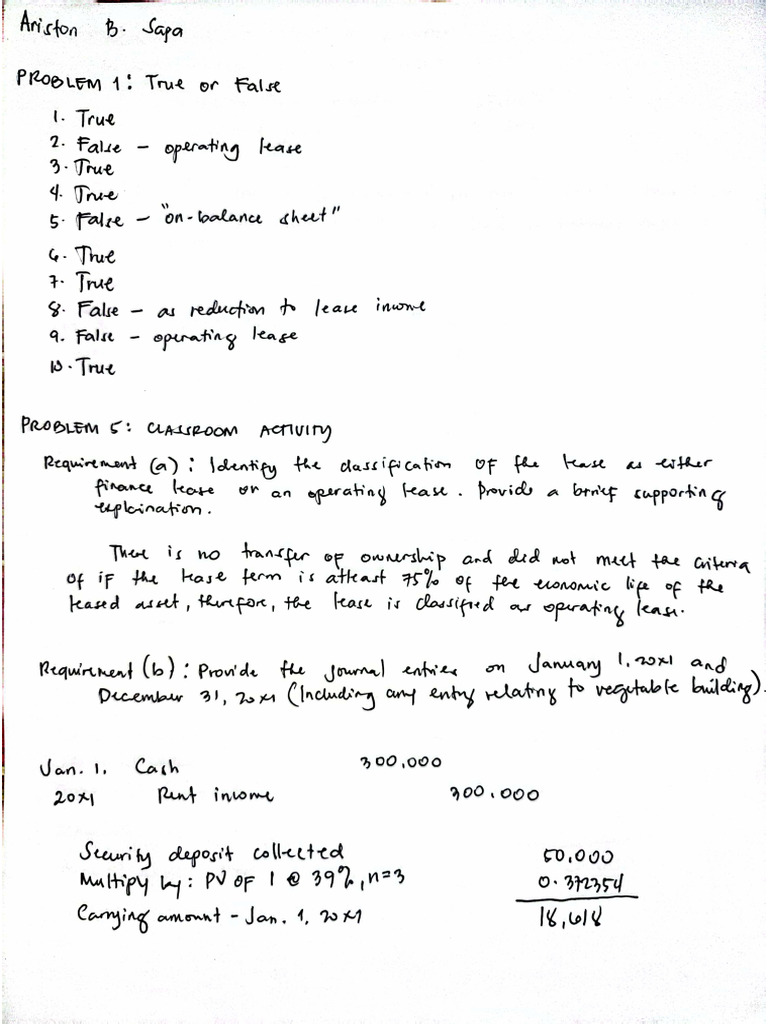 Ariston B. Sapa
PROBLEM 1: True or False
1. True
2. False - operating lease
3. True
4. True
5. False - "on-balance sheet"
6. True
7. True
8. False - as reduction to lease income
9. False - operating lease
10. True
PROBLEM 5: CLASSROOM ACTIVITY
Requirement (a): Identify the classification of the lease as either
finance lease or an operating lease. Provide a brief supporting
explaination.
There is no transfer of ownership and did not meet the criteria
of if the lease term is atleast 75% of the economic life of the
leased asset, therefore, the lease is classified as operating lease.
Requirement (b): Provide the journal entries on January 1, 20x1 and
December 31, 20x1 (Including any entry relating to vegetable building).
Jan. 1, Cash 300,000
20x1 Rent income 300,000
Security deposit collected 50,000
Multiply by: PV OF 1 @ 39%, n=3 0.372354
Carrying amount - Jan. 1, 20x1 18,618